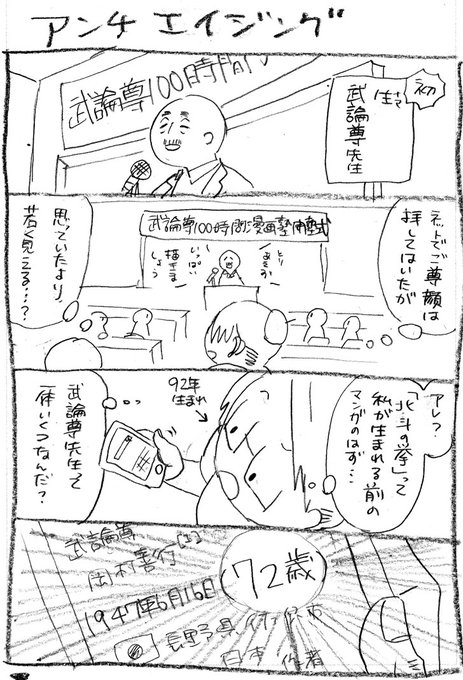 アンチ エイジング
武論尊100時間
初
生
武論尊先生
ネットでご尊顔は
拝してはいたが
武論尊100時間漫画塾開塾式
とり
あえず
いっぱい
描きま
しょう
思っていたより、
若く見える…?
アレ?
「北斗の拳」って
私が生まれる前の
マンガのはず…
92年
生まれ
武論尊先生って
一体いくつなんだ?
武論尊
岡村善行
72歳
1947年6月16日
長野県佐久市
日本 作者